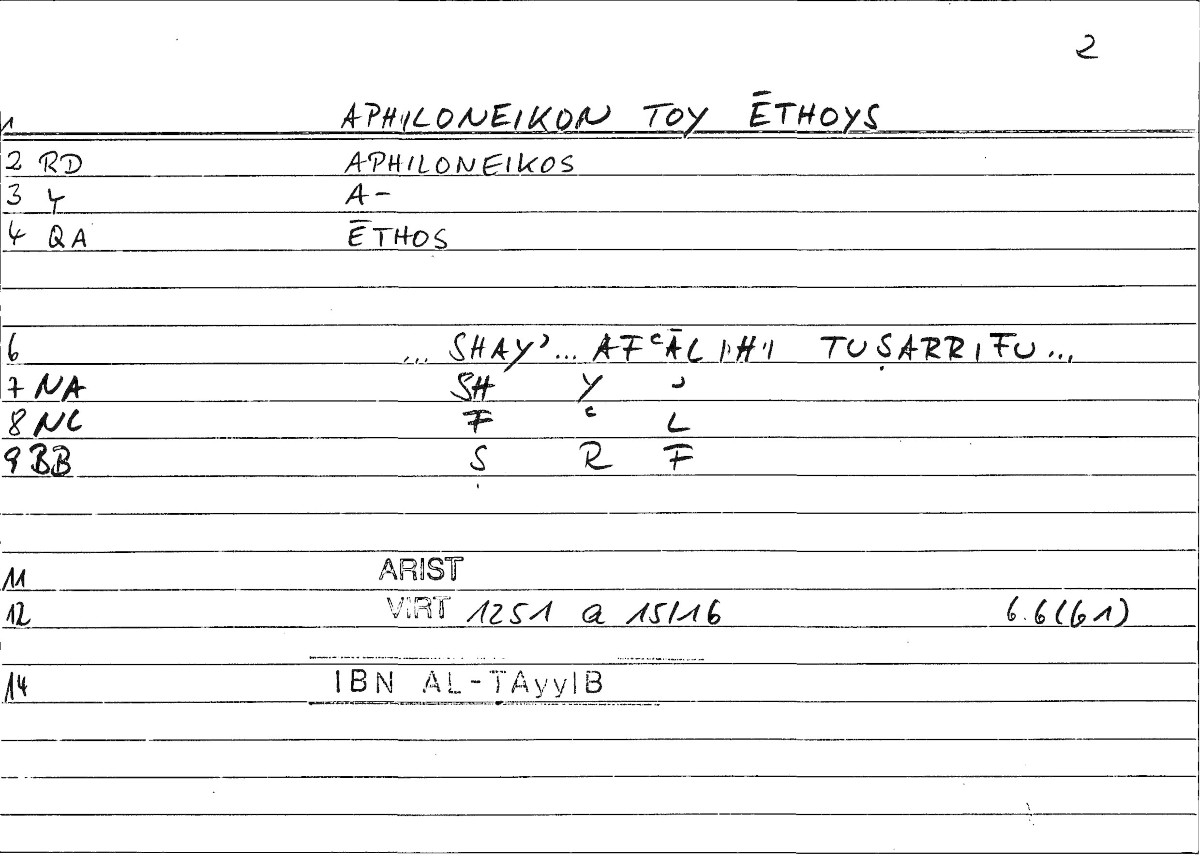 2
1 APHILONEIKON TOY ĒTHOYS
2 RD APHILONEIKOS
3 Y A-
4 QA ĒTHOS
6 ... SHAY' ... AFʿĀL IHI TUṢARRIFU ...
7 NA SH Y '
8 NC F ʿ L
9 BB Ṣ R F
11 ARIST
12 VIRT 1251 a 15/16 6.6(61)
14 IBN AL-TAyyIB